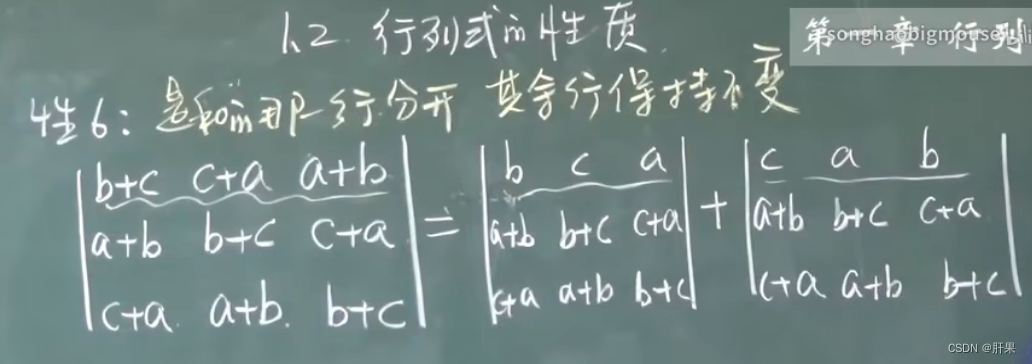 1.2 行列式的性质
songhaobigmouse
第一章 行列
性6：是和的那一行分开 其余行保持不变
| b+c c+a a+b | | b c a | | c a b |
| a+b b+c c+a | = | a+b b+c c+a | + | a+b b+c c+a |
| c+a a+b b+c | | c+a a+b b+c | | c+a a+b b+c |
CSDN @肝果